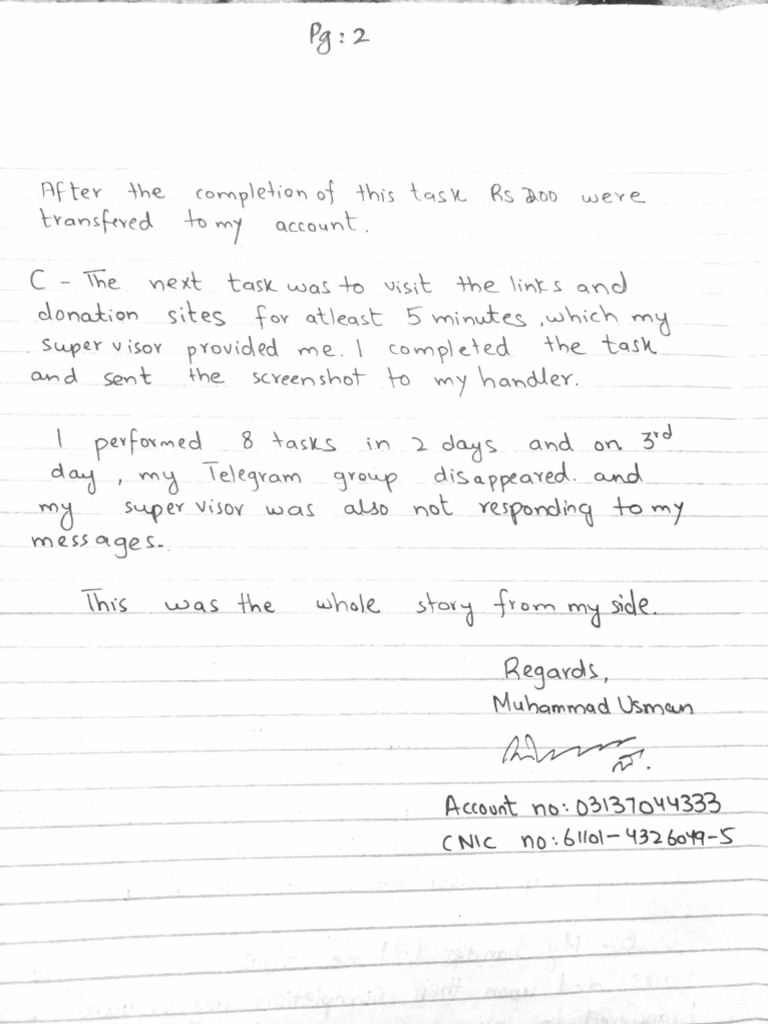 Pg: 2
After the completion of this task Rs 200 were
transfered to my account.
C - The next task was to visit the links and
donation sites for atleast 5 minutes, which my
supervisor provided me. I completed the task
and sent the screenshot to my handler.
I performed 8 tasks in 2 days and on 3rd
day, my Telegram group disappeared. and
my supervisor was also not responding to my
messages.
This was the whole story from my side.
Regards,
Muhammad Usman
Account no: 03137044333
CNIC no: 61101-4326049-5